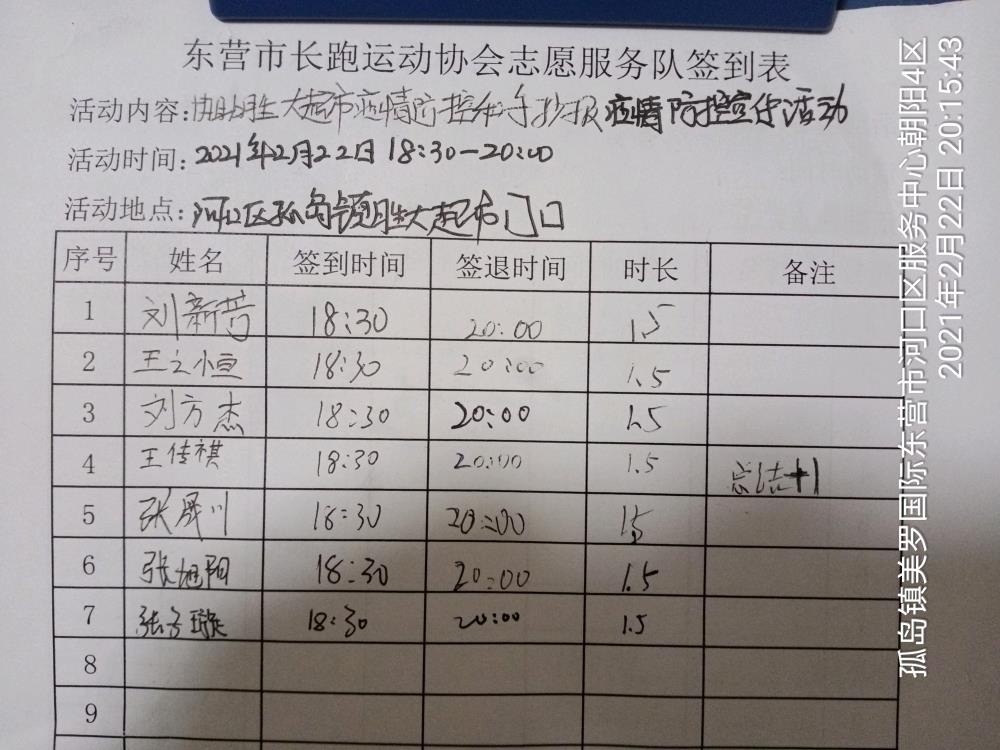 东营市长跑运动协会志愿服务队签到表
活动内容:协助胜大超市疫情防控和手抄报疫情防控宣传活动
活动时间:2021年2月22日 18:30-20:00
活动地点:河口区孤岛镇胜大超市门口
序号 姓名 签到时间 签退时间 时长 备注
1 刘新 18:30 20:00 1.5
2 王之恒 18:30 20:00 1.5
3 刘方杰 18:30 20:00 1.5
4 王佳祺 18:30 20:00 1.5 总结+1
5 张晟川 18:30 20:00 1.5
6 张旭阳 18:30 20:00 1.5
7 张方璇 18:30 20:00 1.5
8
9
孤岛镇美罗国际东营市河口区服务中心朝阳4区
2021年2月22日 20:15:43